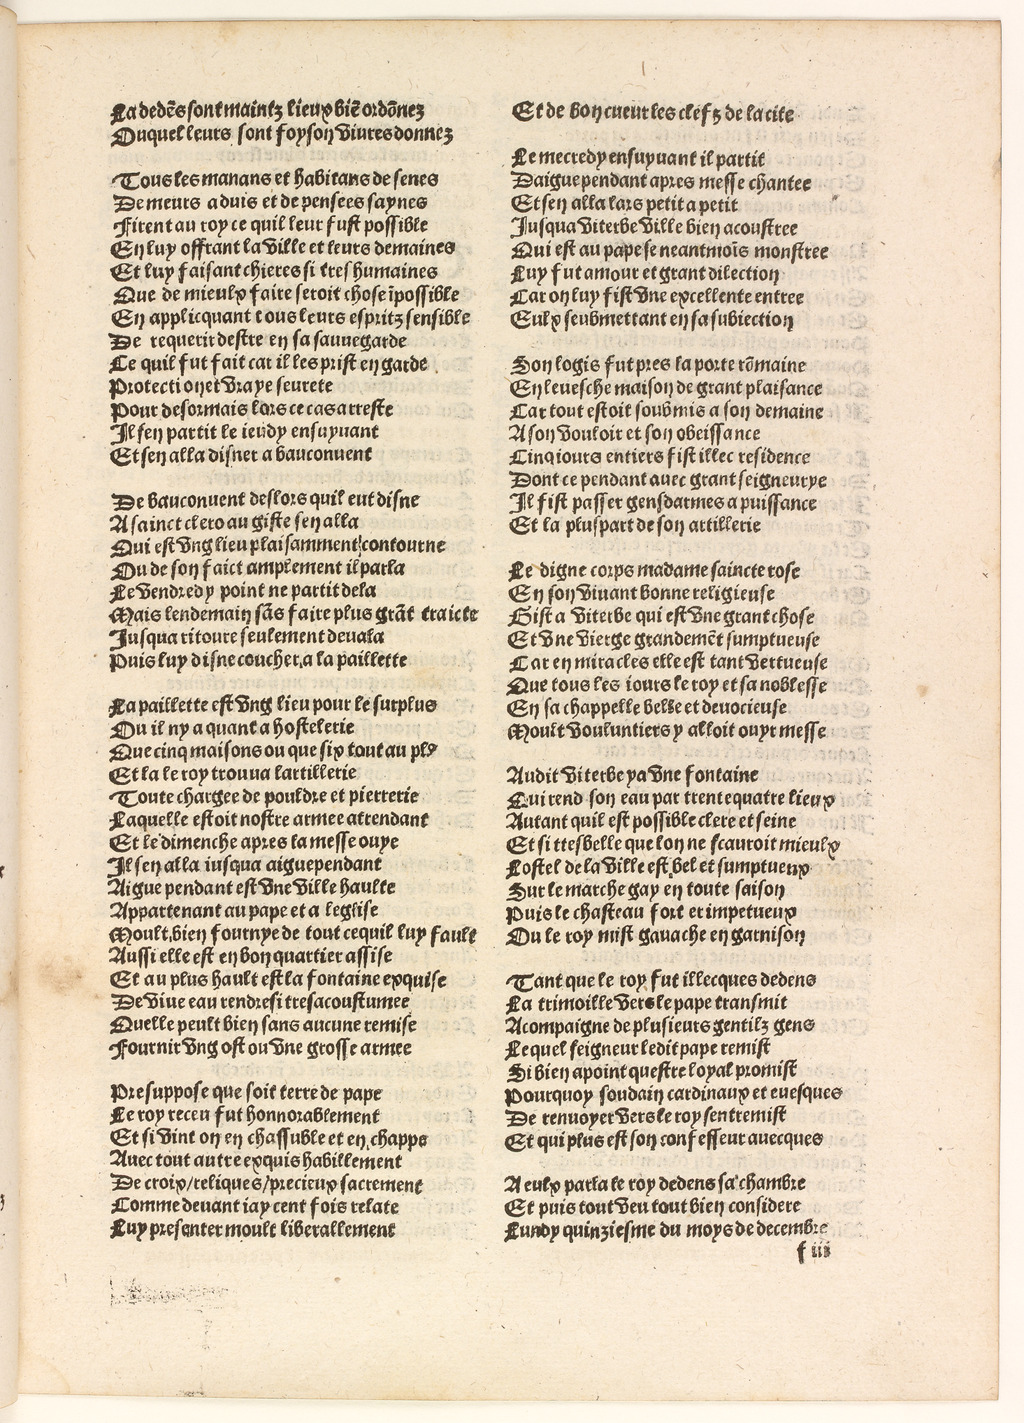 La dedẽs sont maintz lieux biẽ ordõnez
Ouquel leurs sont foyson viures donnez
Tous les manans et habitans de senes
De meurs aduis et de pensees saynes
Firent au roy ce quil leur fust possible
En luy offrant la ville et leurs demaines
Et luy faisant chieres si tres humaines
Que de mieulx faire seroit chose ĩpossible
En applicquant tous leurs espritz sensible
De requerir destre en sa sauuegarde
Ce quil fut fait car il les prist en garde
Protection et vraye seurete
Pour desormais lors ce cas arreste
Il sen partit le ieudy ensuyuant
Et sen alla disner a bauconuent
De bauconuent deslors quil eut disne
A sainct clero au giste sen alla
Qui est vng lieu plaisamment contourne
Ou de son faict amplement il parla
Le vendredy point ne partit dela
Mais lendemain sãs faire plus grãt traicte
Jusqua ritoure seulement deuala
Puis luy disne coucher a la paillette
La paillette est vng lieu pour le surplus
Ou il ny a quant a hostelerie
Que cinq maisons ou que six tout au plꝰ
Et la le roy trouua lartillerie
Toute chargee de pouldre et pierrerie
Laquelle estoit nostre armee attendant
Et le dimenche apres la messe ouye
Il sen alla iusqua aiguependant
Aigue pendant est vne ville haulte
Appartenant au pape et a leglise
Moult bien fournye de tout ce quil luy fault
Aussi elle est en bon quartier assise
Et au plus hault est la fontaine exquise
De viue eau rendre si tresacoustumee
Quelle peult bien sans aucune remise
Fournir vng ost ou vne grosse armee
Presuppose que soit terre de pape
Le roy receu fut honnorablement
Et si vint on en chassuble et en chappe
Auec tout autre exquis habillement
De croix/reliques/precieux sacrement
Comme deuant iay cent fois relate
Luy presenter moult liberallement
Et de bon cueur les clefz de la cite
Le mecredy ensuyuant il partit
Daiguependant apres messe chantee
Et sen alla lars petit a petit
Jusqua viterbe ville bien acoustree
Qui est au pape se neantmoĩs monstree
Luy fut amour et grant dilection
Car on luy fist vne excellente entree
Eulx seubmettant en sa subiection
Son logis fut pres la porte rõmaine
En leuesche maison de grant plaisance
Car tout estoit soubmis a son demaine
A son vouloir et son obeissance
Cinq iours entiers fist illec residence
Dont ce pendant auec grant seigneurye
Il fist passer gensdarmes a puissance
Et la pluspart de son artillerie
Le digne corps madame saincte rose
En son viuant bonne religieuse
Gist a viterbe qui est vne grant chose
Et vne vierge grandemẽt sumptueuse
Car en miracles elle est tant vertueuse
Que tous les iours le roy et sa noblesse
En sa chappelle belle et deuocieuse
Moult vouluntiers y alloit ouyr messe
Audit viterbe ya vne fontaine
Qui rend son eau par trente quatre lieux
Autant quil est possible clere et seine
Et si tresbelle que lon ne scauroit mieulx
Lostel de la ville est bel et sumptueux
Sur le marche gay en toute saison
Puis le chasteau fort et impetueux
Ou le roy mist gauache en garnison
Tant que le roy fut illecques dedens
La trimoille vers le pape transmit
Acompaigne de plusieurs gentilz gens
Lequel seigneur ledit pape remist
Si bien apoint questre loyal promist
Pourquoy soudain cardinaux et euesques
De renuoyer vers le roy sentremist
Et qui plus est son confesseur auecques
A eulx parla le roy dedens sa chambre
Et puis tout veu tout bien considere
Lundy quinziesme du moys de decembre
f iii